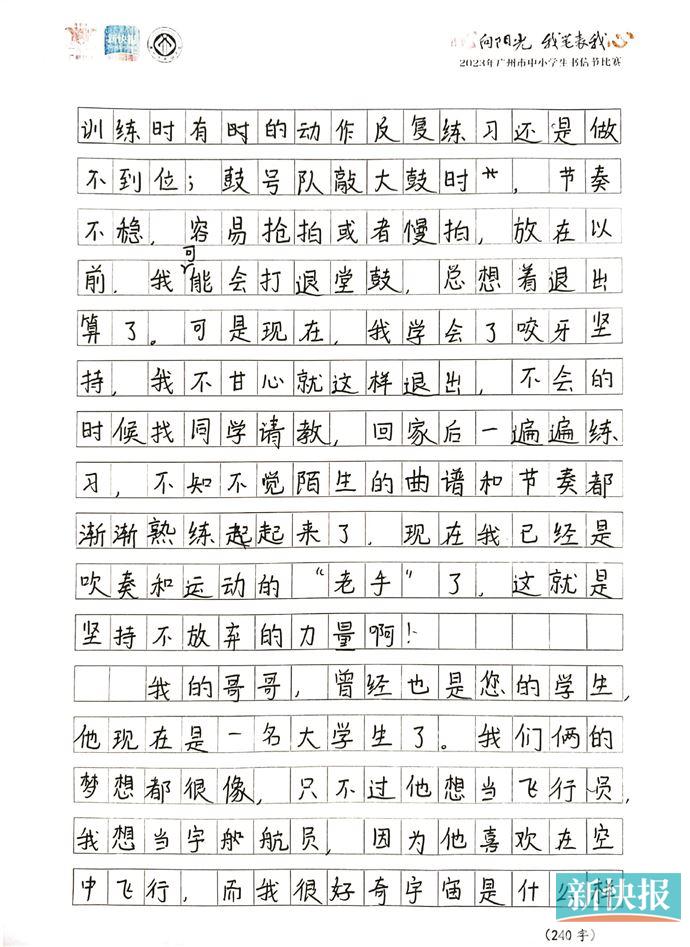 新快报
向阳光 我笔表我心
2023年广州市中小学生书信节比赛
训练时有时的动作反复练习还是做
不到位；鼓号队敲大鼓时，节奏
不稳，容易抢拍或者慢拍，放在以
前，我可能会打退堂鼓，总想着退出
算了。可是现在，我学会了咬牙坚
持，我不甘心就这样退出，不会的
时候找同学请教，回家后一遍遍练
习，不知不觉陌生的曲谱和节奏都
渐渐熟练起起来了，现在我已经是
吹奏和运动的“老手”了，这就是
坚持不放弃的力量啊！
我的哥哥，曾经也是您的学生，
他现在是一名大学生了。我们俩的
梦想都很像，只不过他想当飞行员，
我想当宇船航员，因为他喜欢在空
中飞行，而我很好奇宇宙是什么样
新快报
(240字)